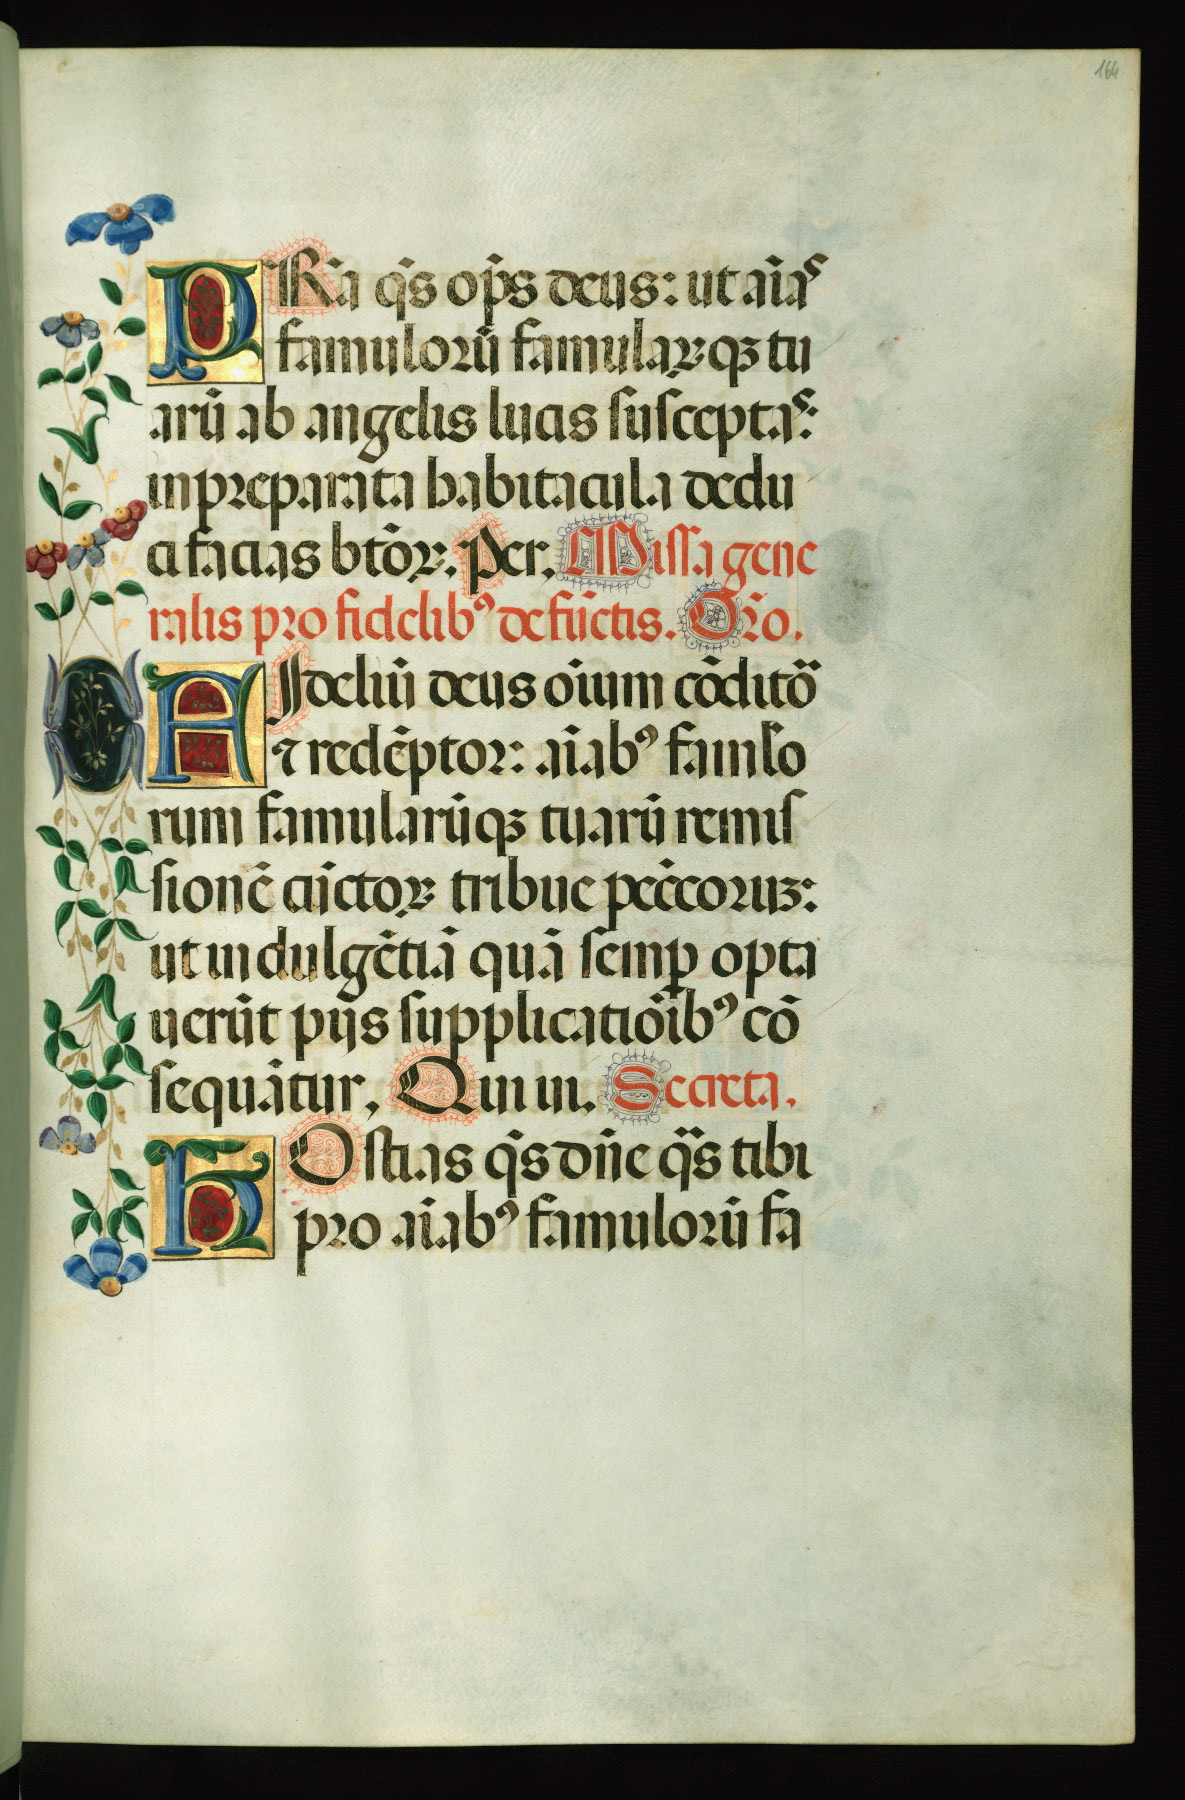 164
PRā q̄s op̄s deus: ut aīas
famulorū famulaꝝqꝫ tu
arū ab angelis lucis susceptas:
in preparata habitacula dedu
ci facias btōꝝ. Per. Missa gene
ralis pro fidelibꝰ defūctis. Oro.
FIdeliū deus oīum cōditōr
⁊ redēptor: aīabꝰ famlo
rum famularūqꝫ tuarū remis
sionē cūctoꝝ tribue peccoruꝫ:
ut indulgētiā quā semꝑ opta
uerūt pijs supplicatiōibꝰ cō
sequātur, Qui ui. Secreta.
HOstias q̄s dn̄e q̄s tibi
pro aīabꝰ famulorū fa